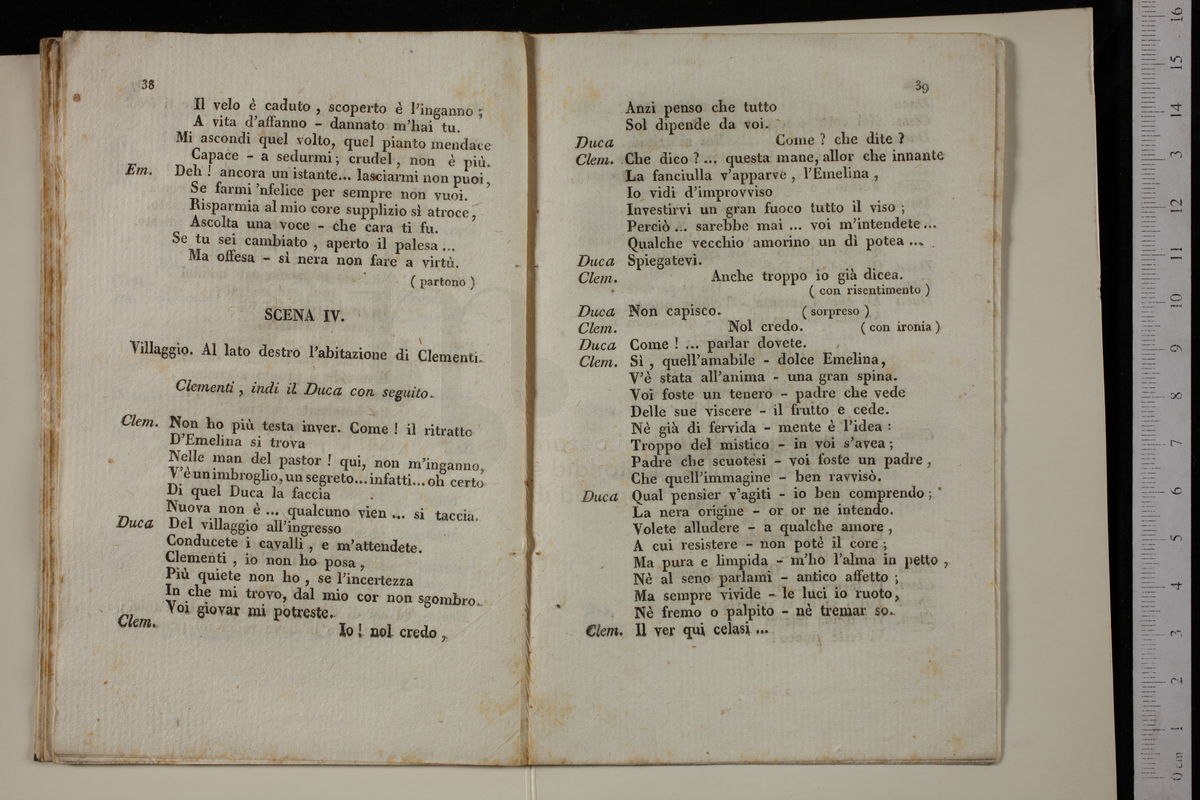 38
Il velo è caduto , scoperto è l'inganno ;
A vita d'affanno - dannato m'hai tu.
Mi ascondi quel volto, quel pianto mendace
Capace - a sedurmi ; crudel , non è più.
Em. Deh ! ancora un istante... lasciarmi non puoi ,
Se farmi 'nfelice per sempre non vuoi.
Risparmia al mio core supplizio sì atroce ,
Ascolta una voce - che cara ti fu.
Se tu sei cambiato , aperto il palesa ...
Ma offesa - sì nera non fare a virtù.
( partono )
SCENA IV.
Villaggio. Al lato destro l'abitazione di Clementi.
Clementi , indi il Duca con seguito.
Clem. Non ho più testa inver. Come ! il ritratto
D'Emelina si trova
Nelle man del pastor ! qui, non m'inganno,
V'è un imbroglio, un segreto... infatti... oh certo
Di quel Duca la faccia
Nuova non è ... qualcuno vien ... si taccia.
Duca Del villaggio all'ingresso
Conducete i cavalli , e m'attendete.
Clementi , io non ho posa ,
Più quiete non ho , se l'incertezza
In che mi trovo, dal mio cor non sgombro.
Voi giovar mi potreste.
Clem. Io ! nol credo ,
39
Anzi penso che tutto
Sol dipende da voi.
Duca Come ? che dite ?
Clem. Che dico ? ... questa mane, allor che innante
La fanciulla v'apparve , l'Emelina ,
Io vidi d'improvviso
Investirvi un gran fuoco tutto il viso ;
Perciò ... sarebbe mai ... voi m'intendete...
Qualche vecchio amorino un dì potea ...
Duca Spiegatevi.
Clem. Anche troppo io già dicea.
( con risentimento )
Duca Non capisco. ( sorpreso )
Clem. Nol credo. ( con ironia )
Duca Come ! ... parlar dovete.
Clem. Sì , quell'amabile - dolce Emelina,
V'è stata all'anima - una gran spina.
Voi foste un tenero - padre che vede
Delle sue viscere - il frutto e cede.
Nè già di fervida - mente è l'idea :
Troppo del mistico - in voi s'avea ;
Padre che scuotesi - voi foste un padre ,
Che quell'immagine - ben ravvisò.
Duca Qual pensier v'agiti - io ben comprendo ;
La nera origine - or or ne intendo.
Volete alludere - a qualche amore ,
A cui resistere - non potè il core ;
Ma pura e limpida - m'ho l'alma in petto ,
Nè al seno parlami - antico affetto ;
Ma sempre vivide - le luci io ruoto,
Nè fremo o palpito - nè tremar so.
Clem. Il ver qui celasi ...
16
15
14
13
12
11
10
9
8
7
6
5
4
3
2
1
0 cm